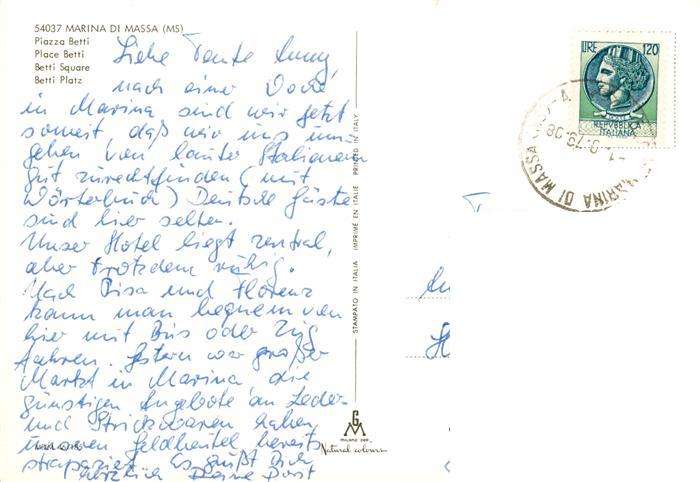 54037 MARINA DI MASSA (MS)
Piazza Betti
Place Betti
Betti Square
Betti Platz
Liebe Tante Anny,
nach einer Woche
in Marina sind wir jetzt
soweit, daß wir uns um-
geben von lauter Italienern
gut zurechtfinden (mit
Wörterbuch) Deutsche Gäste
sind hier selten.
Unser Hotel liegt zentral,
aber trotzdem ruhig.
Nach Pisa und Florenz
kann man bequem von
hier mit Bus oder Zug
fahren. Gestern war großer
Markt in Marina die
günstigen Angebote an Leder-
und Strickwaren haben
unseren Geldbeutel bereits
strapaziert. Es grüßt Dich
herzlich Deine
STAMPATO IN ITALIA IMPRIME EN ITALIE PRINTED IN ITALY
GM
MILANO
Natural colours
LIRE 120
REPUBBLICA
ITALIANA
MARINA DI MASSA